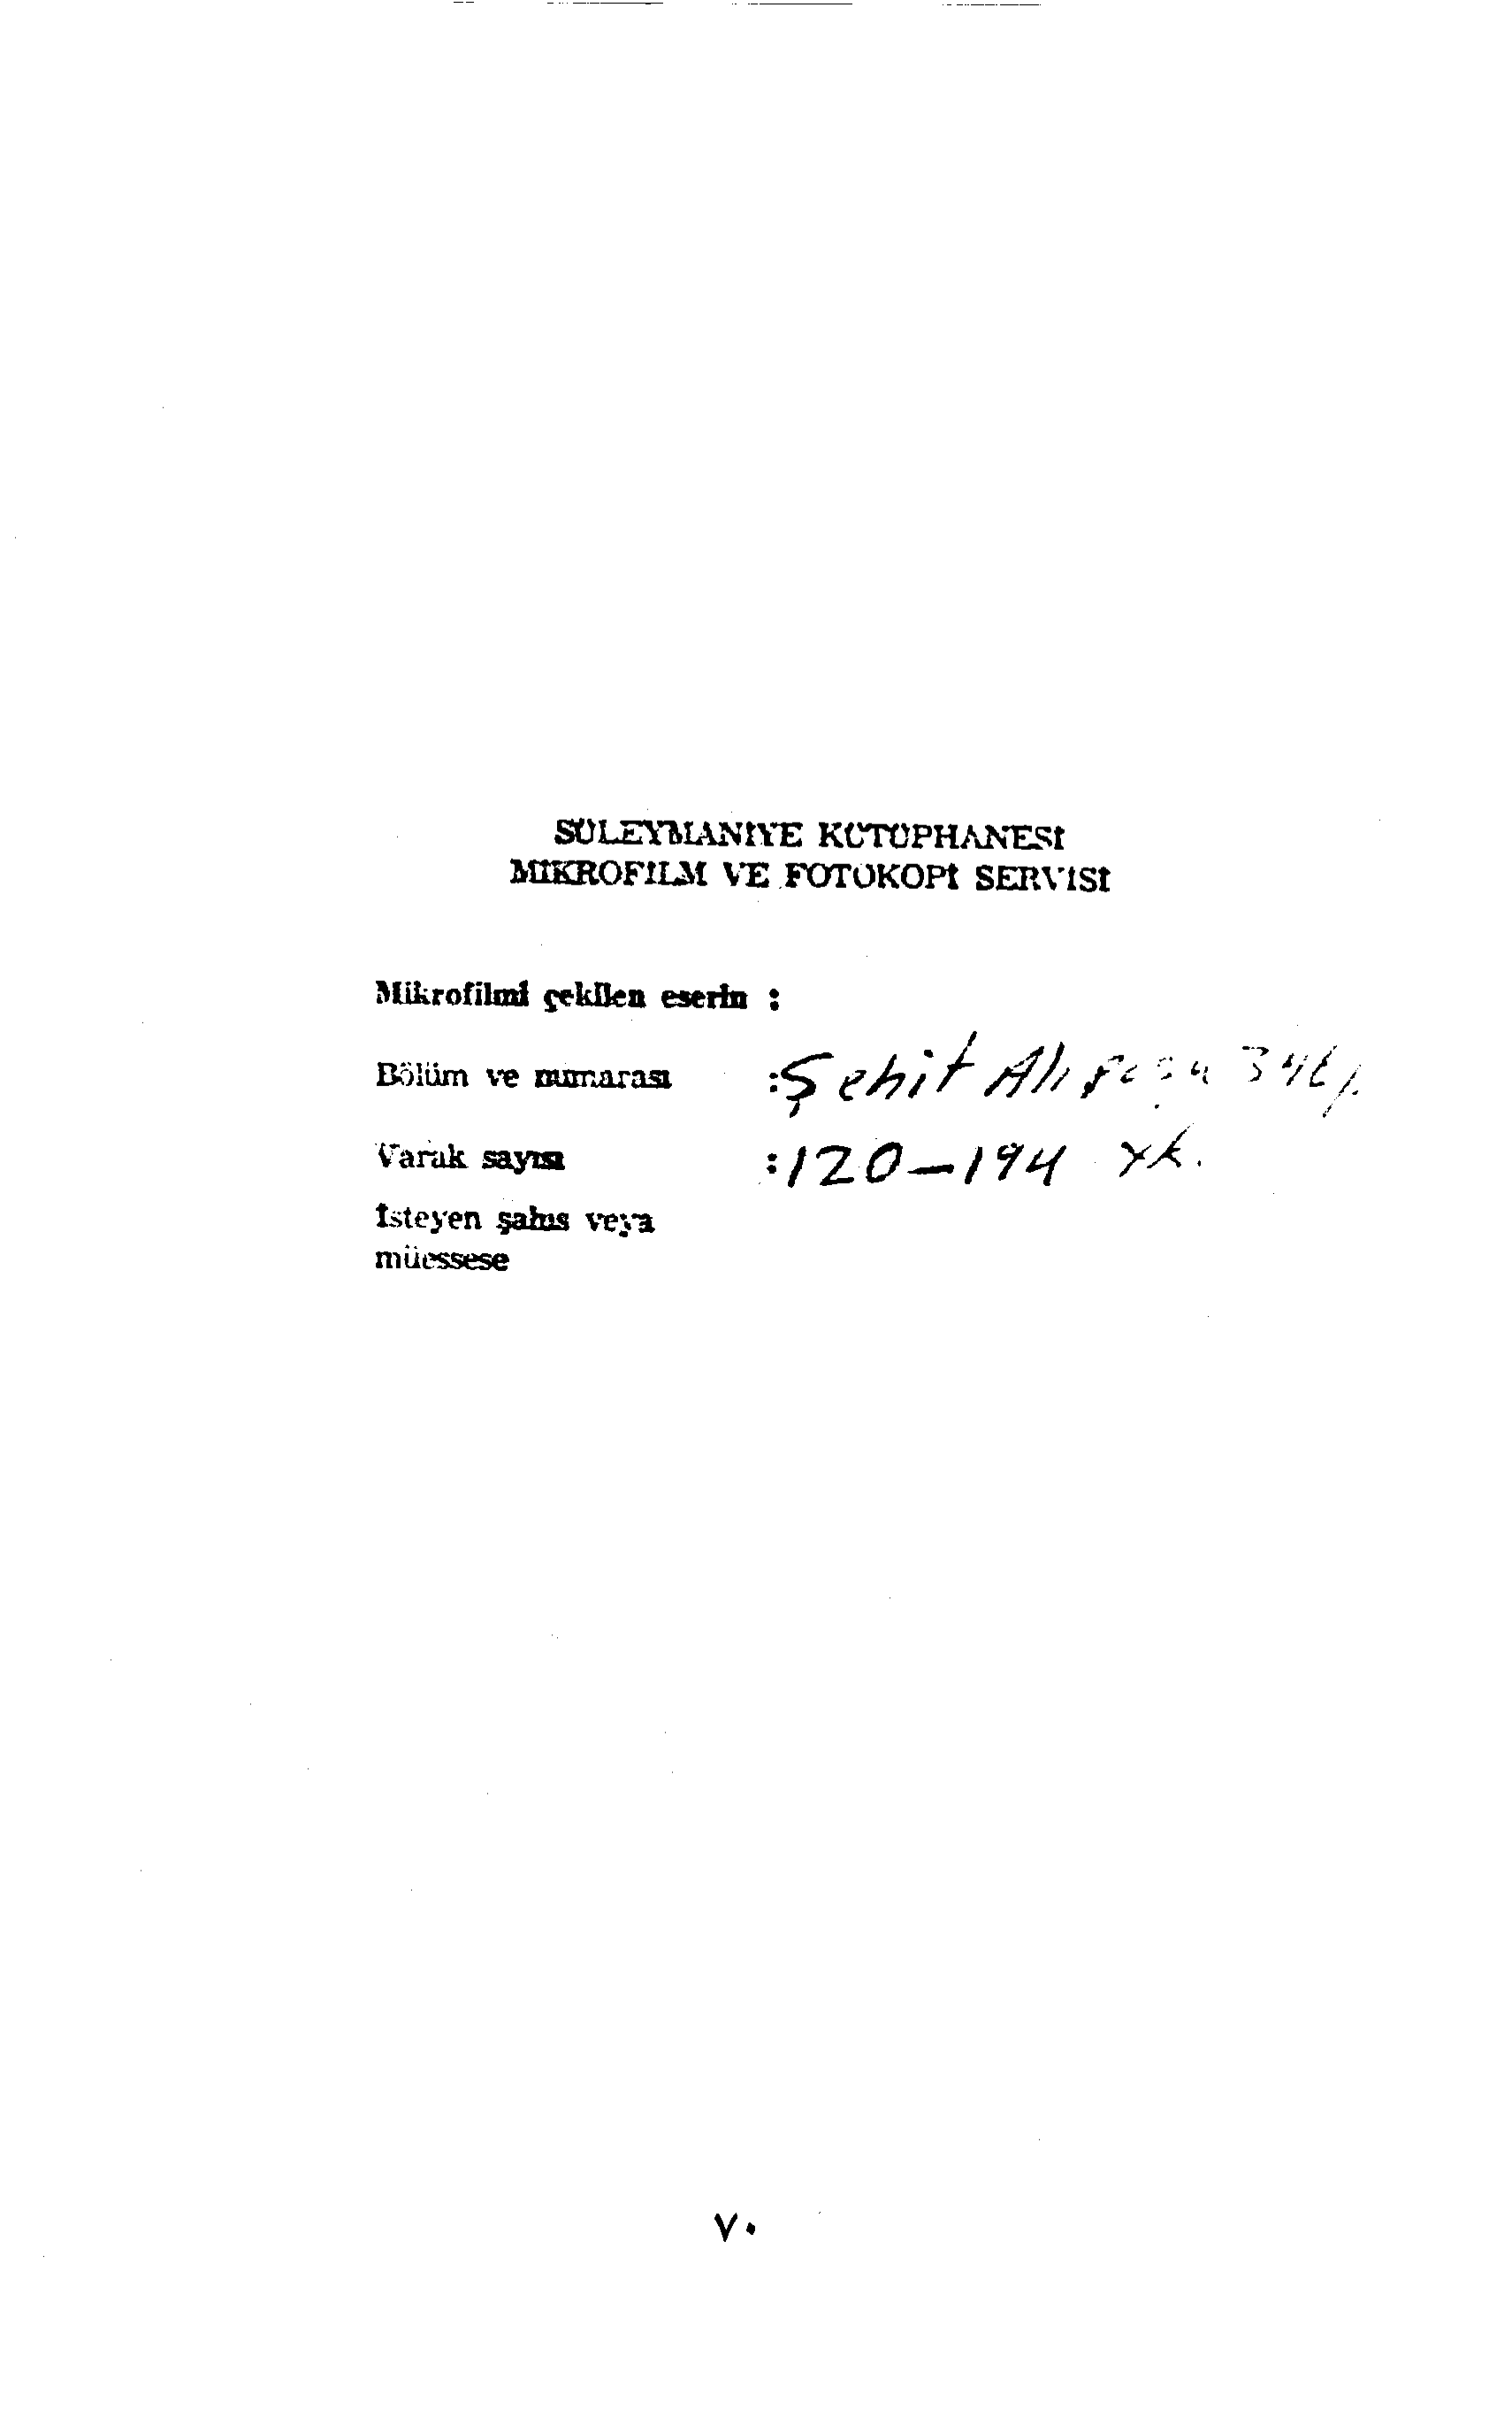 SÜLEYMANİYE KÜTÜPHANESİ
MİKROFİLM VE FOTOKOPİ SERVİSİ
Mikrofilmi çekilen eserin :
Bölüm ve numarası :Şehit Ali Paşa
Varak sayısı :120-194 yk.
İsteyen şahıs veya
müessese
٧٠